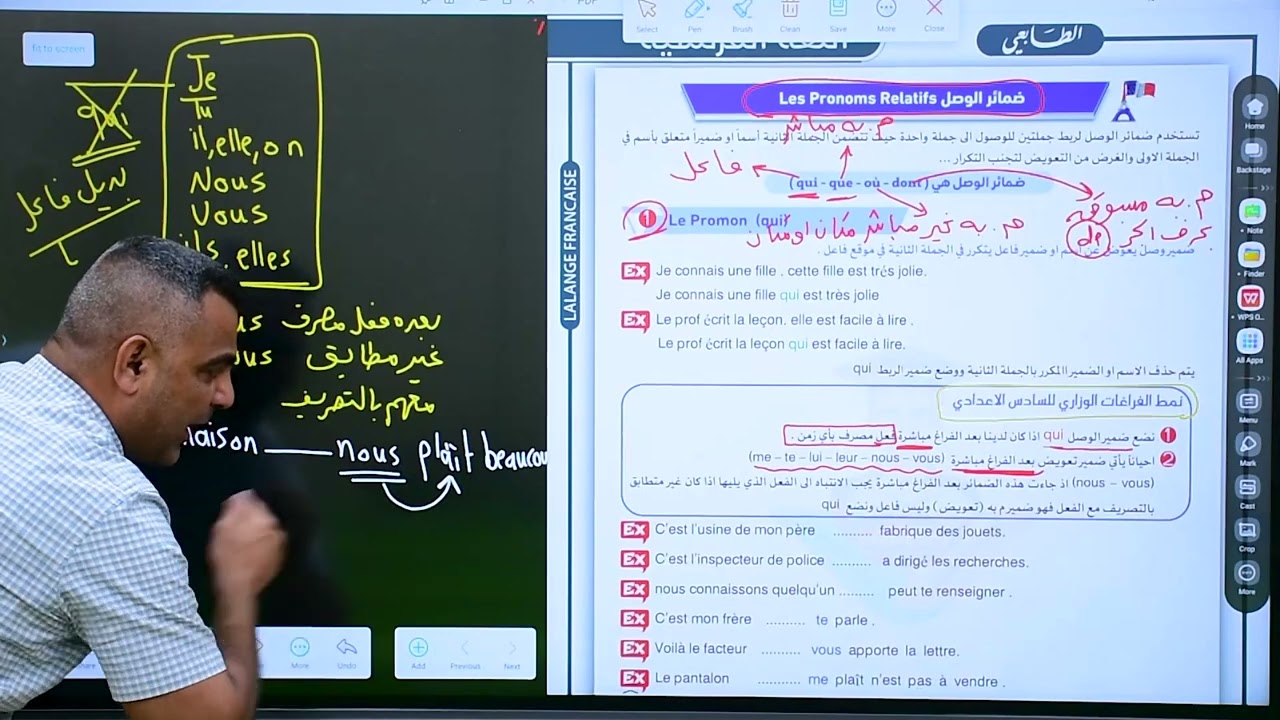 fit to screen
Je
Tu
il, elle, on
Nous
Vous
ils, elles
بديل فاعل
بعده فعل مصرف
غير مطابق
معهم بالتصريف
maison —— nous plaît beaucou
Share
More
Undo
Add
Previous
Next
PDF
Select
Pen
Brush
Clean
Save
More
Close
الطابعي
LALANGE FRANCAISE
ضمائر الوصل Les Pronoms Relatifs
م. به مباشر
تستخدم ضمائر الوصل لربط جملتين للوصول الى جملة واحدة حيث تتضمن الجملة الثانية أسماً او ضميراً متعلق بأسم في
الجملة الاولى والغرض من التعويض لتجنب التكرار ...
فاعل
ضمائر الوصل هي (qui - que - où - dont)
م. به مسبوقه
بحرف الجر de
م. به غير مباشر
❶ Le Promon (qui)
ضمير وصل يعوض عن اسم او ضمير فاعل يتكرر في الجملة الثانية في موقع فاعل .
Ex Je connais une fille . cette fille est trés jolie.
Je connais une fille qui est très jolie
Ex Le prof écrit la leçon. elle est facile à lire .
Le prof écrit la leçon qui est facile à lire.
يتم حذف الاسم او الضمير االمكرر بالجملة الثانية ووضع ضمير الربط qui
نمط الفراغات الوزاري للسادس الاعدادي
❶ نضع ضمير الوصل qui اذا كان لدينا بعد الفراغ مباشرة فعل مصرف بأي زمن .
❷ احياناً يأتي ضمير تعويض بعد الفراغ مباشرة (me – te – lui – leur – nous – vous)
(nous – vous) اذ جاءت هذه الضمائر بعد الفراغ مباشرة يجب الانتباه الى الفعل الذي يليها اذا كان غير متطابق
بالتصريف مع الفعل فهو ضمير م به (تعويض) وليس فاعل ونضع qui
Ex C'est l'usine de mon père .......... fabrique des jouets.
Ex C'est l'inspecteur de police .......... a dirigé les recherches.
Ex nous connaissons quelqu'un ......... peut te renseigner .
Ex C'est mon frère .......... te parle .
Ex Voilà le facteur .......... vous apporte la lettre.
Ex Le pantalon ........... me plaît n'est pas à vendre .
Home
Backstage
Note
Finder
WPS O...
All Apps
Menu
Mark
Cast
Crop
More